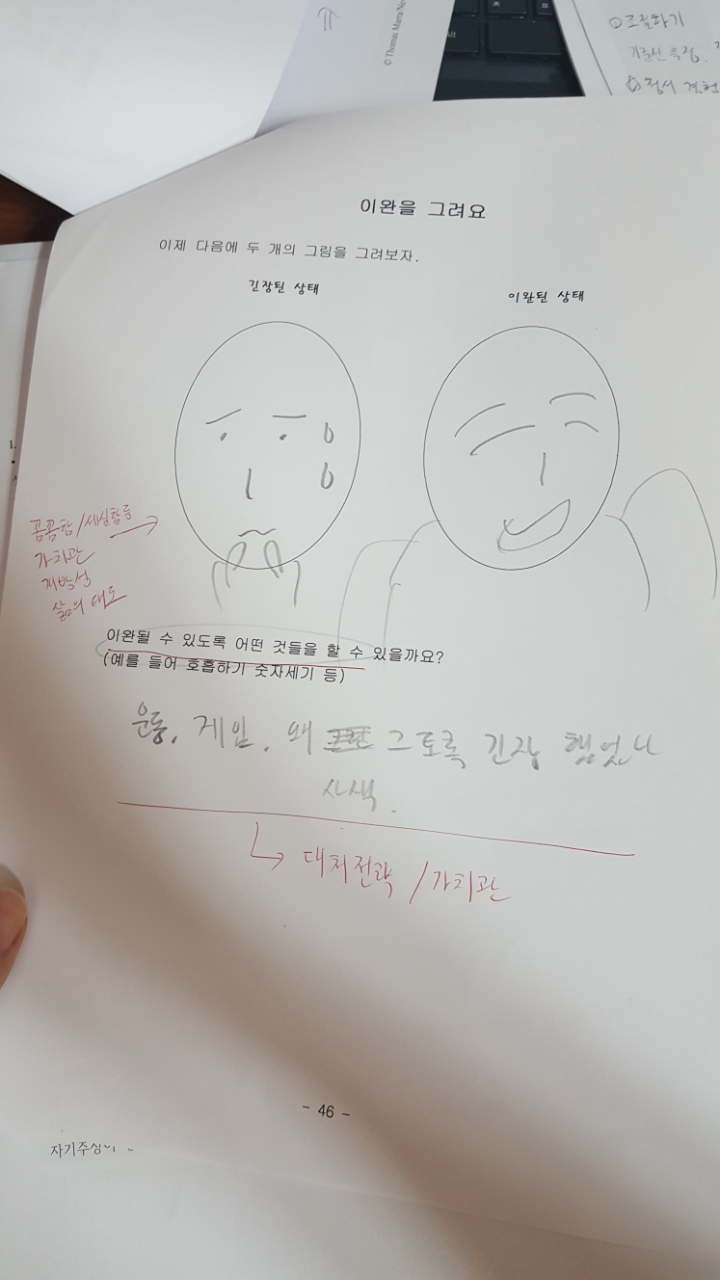 © Thomas Marra
Alt
조절하기
정서
이완을 그려요
이제 다음에 두 개의 그림을 그려보자.
긴장된 상태
이완된 상태
꼼꼼함/세심함 등
가치관
삶의 태도
이완될 수 있도록 어떤 것들을 할 수 있을까요?
(예를 들어 호흡하기 숫자세기 등)
운동, 게임, 왜 그토록 긴장 했었나
사색.
대처전략 / 가치관
- 46 -